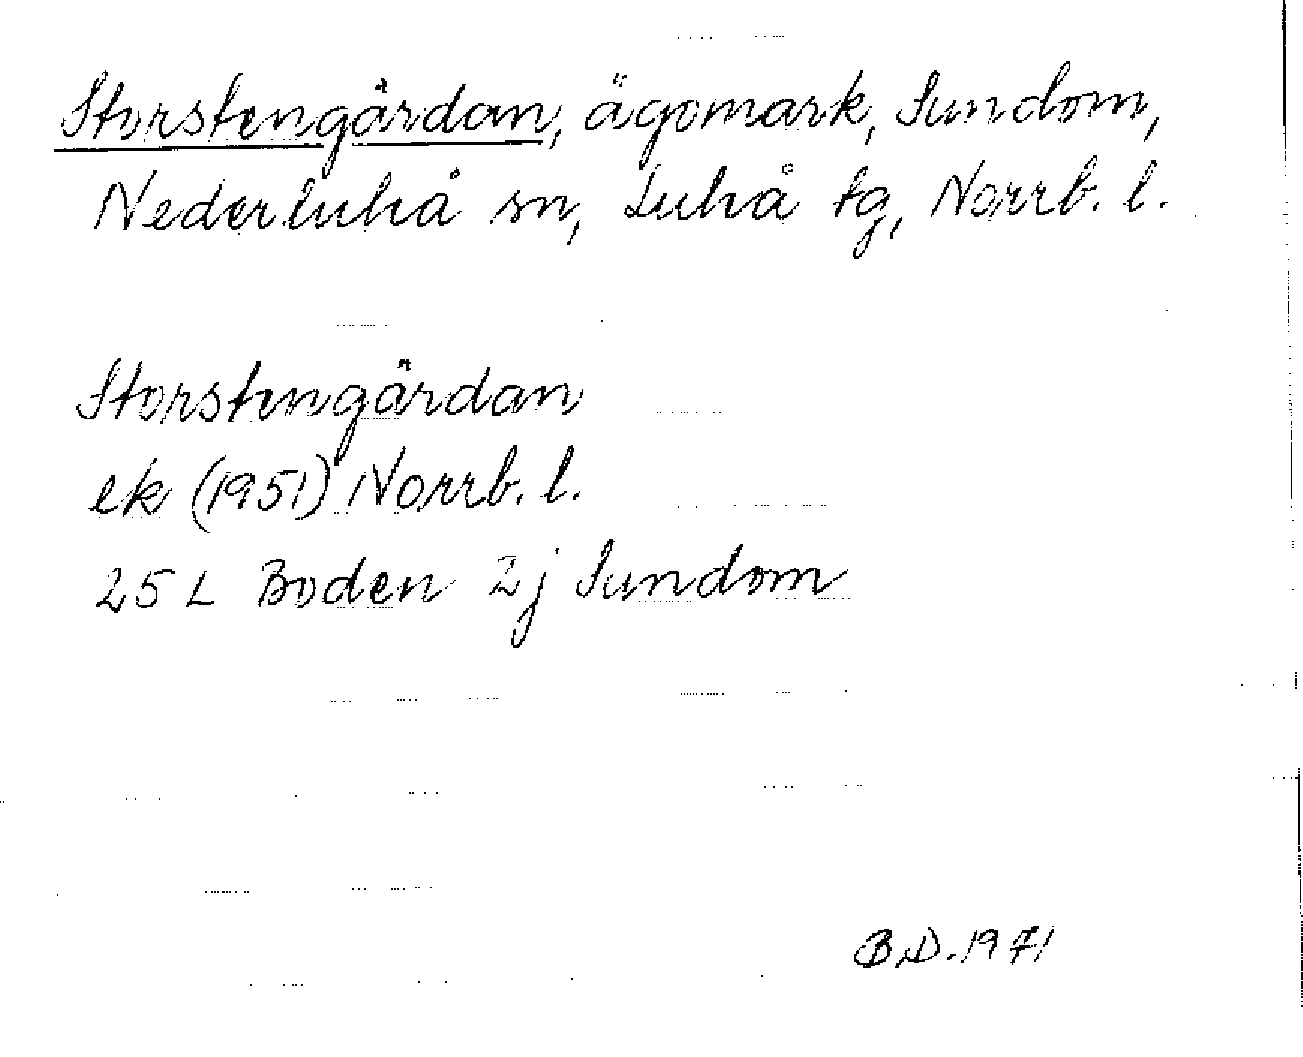 Storstengårdan, ägomark, Sundom,
Nederluleå sn, Luleå tg, Norrb. l.
Storstengårdan
ek (1951) Norrb. l.
25 L Boden 2j Sundom
B.D. 1971